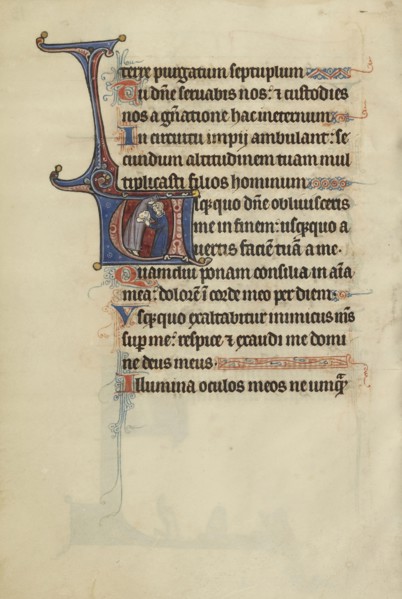 terre purgatum septuplum
Tu dñe servabis nos: ⁊ custodies
nos a gñatione hac in eternum
In circuitu impij ambulant: se
cundum altitudinem tuam mul
tiplicasti filios hominum
Usq̨quo dñe obliuisceris
me in finem: usq̨quo a
uertis faciē tuā a me.
Quamdiu ponam consilia in aīa
mea: dolorē ī corde meo per diem
Vsq̨quo exaltabitur inimicus m̄s
sup me: respice ⁊ exaudi me domi
ne deus meus.
Illumina oculos meos ne umq̄